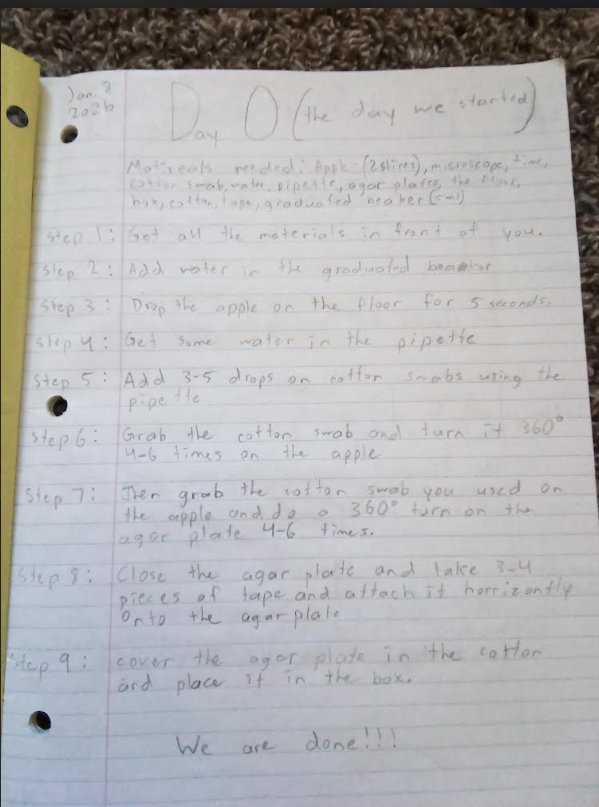 Jan. 2
2026
Day 0 (the day we started)
Matireals needed: Apple (2 slices), microscope, time,
cotton swab, water, pipette, agar plates, the floor,
box, cotton, tape, graduated beaker (5ml)
Step 1: Get all the materials in front of you.
Step 2: Add water in the graduated beaker
Step 3: Drop the apple on the floor for 5 seconds.
Step 4: Get some water in the pipette
Step 5: Add 3-5 drops on cotton swabs using the
pipette
Step 6: Grab the cotton swab and turn it 360°
4-6 times on the apple
Step 7: Then grab the cotton swab you used on
the apple and do a 360° turn on the
agar plate 4-6 times.
Step 8: Close the agar plate and take 3-4
pieces of tape and attach it horrizontly
Onto the agar plate
Step 9: cover the agar plate in the cotton
and place it in the box.
We are done!!!